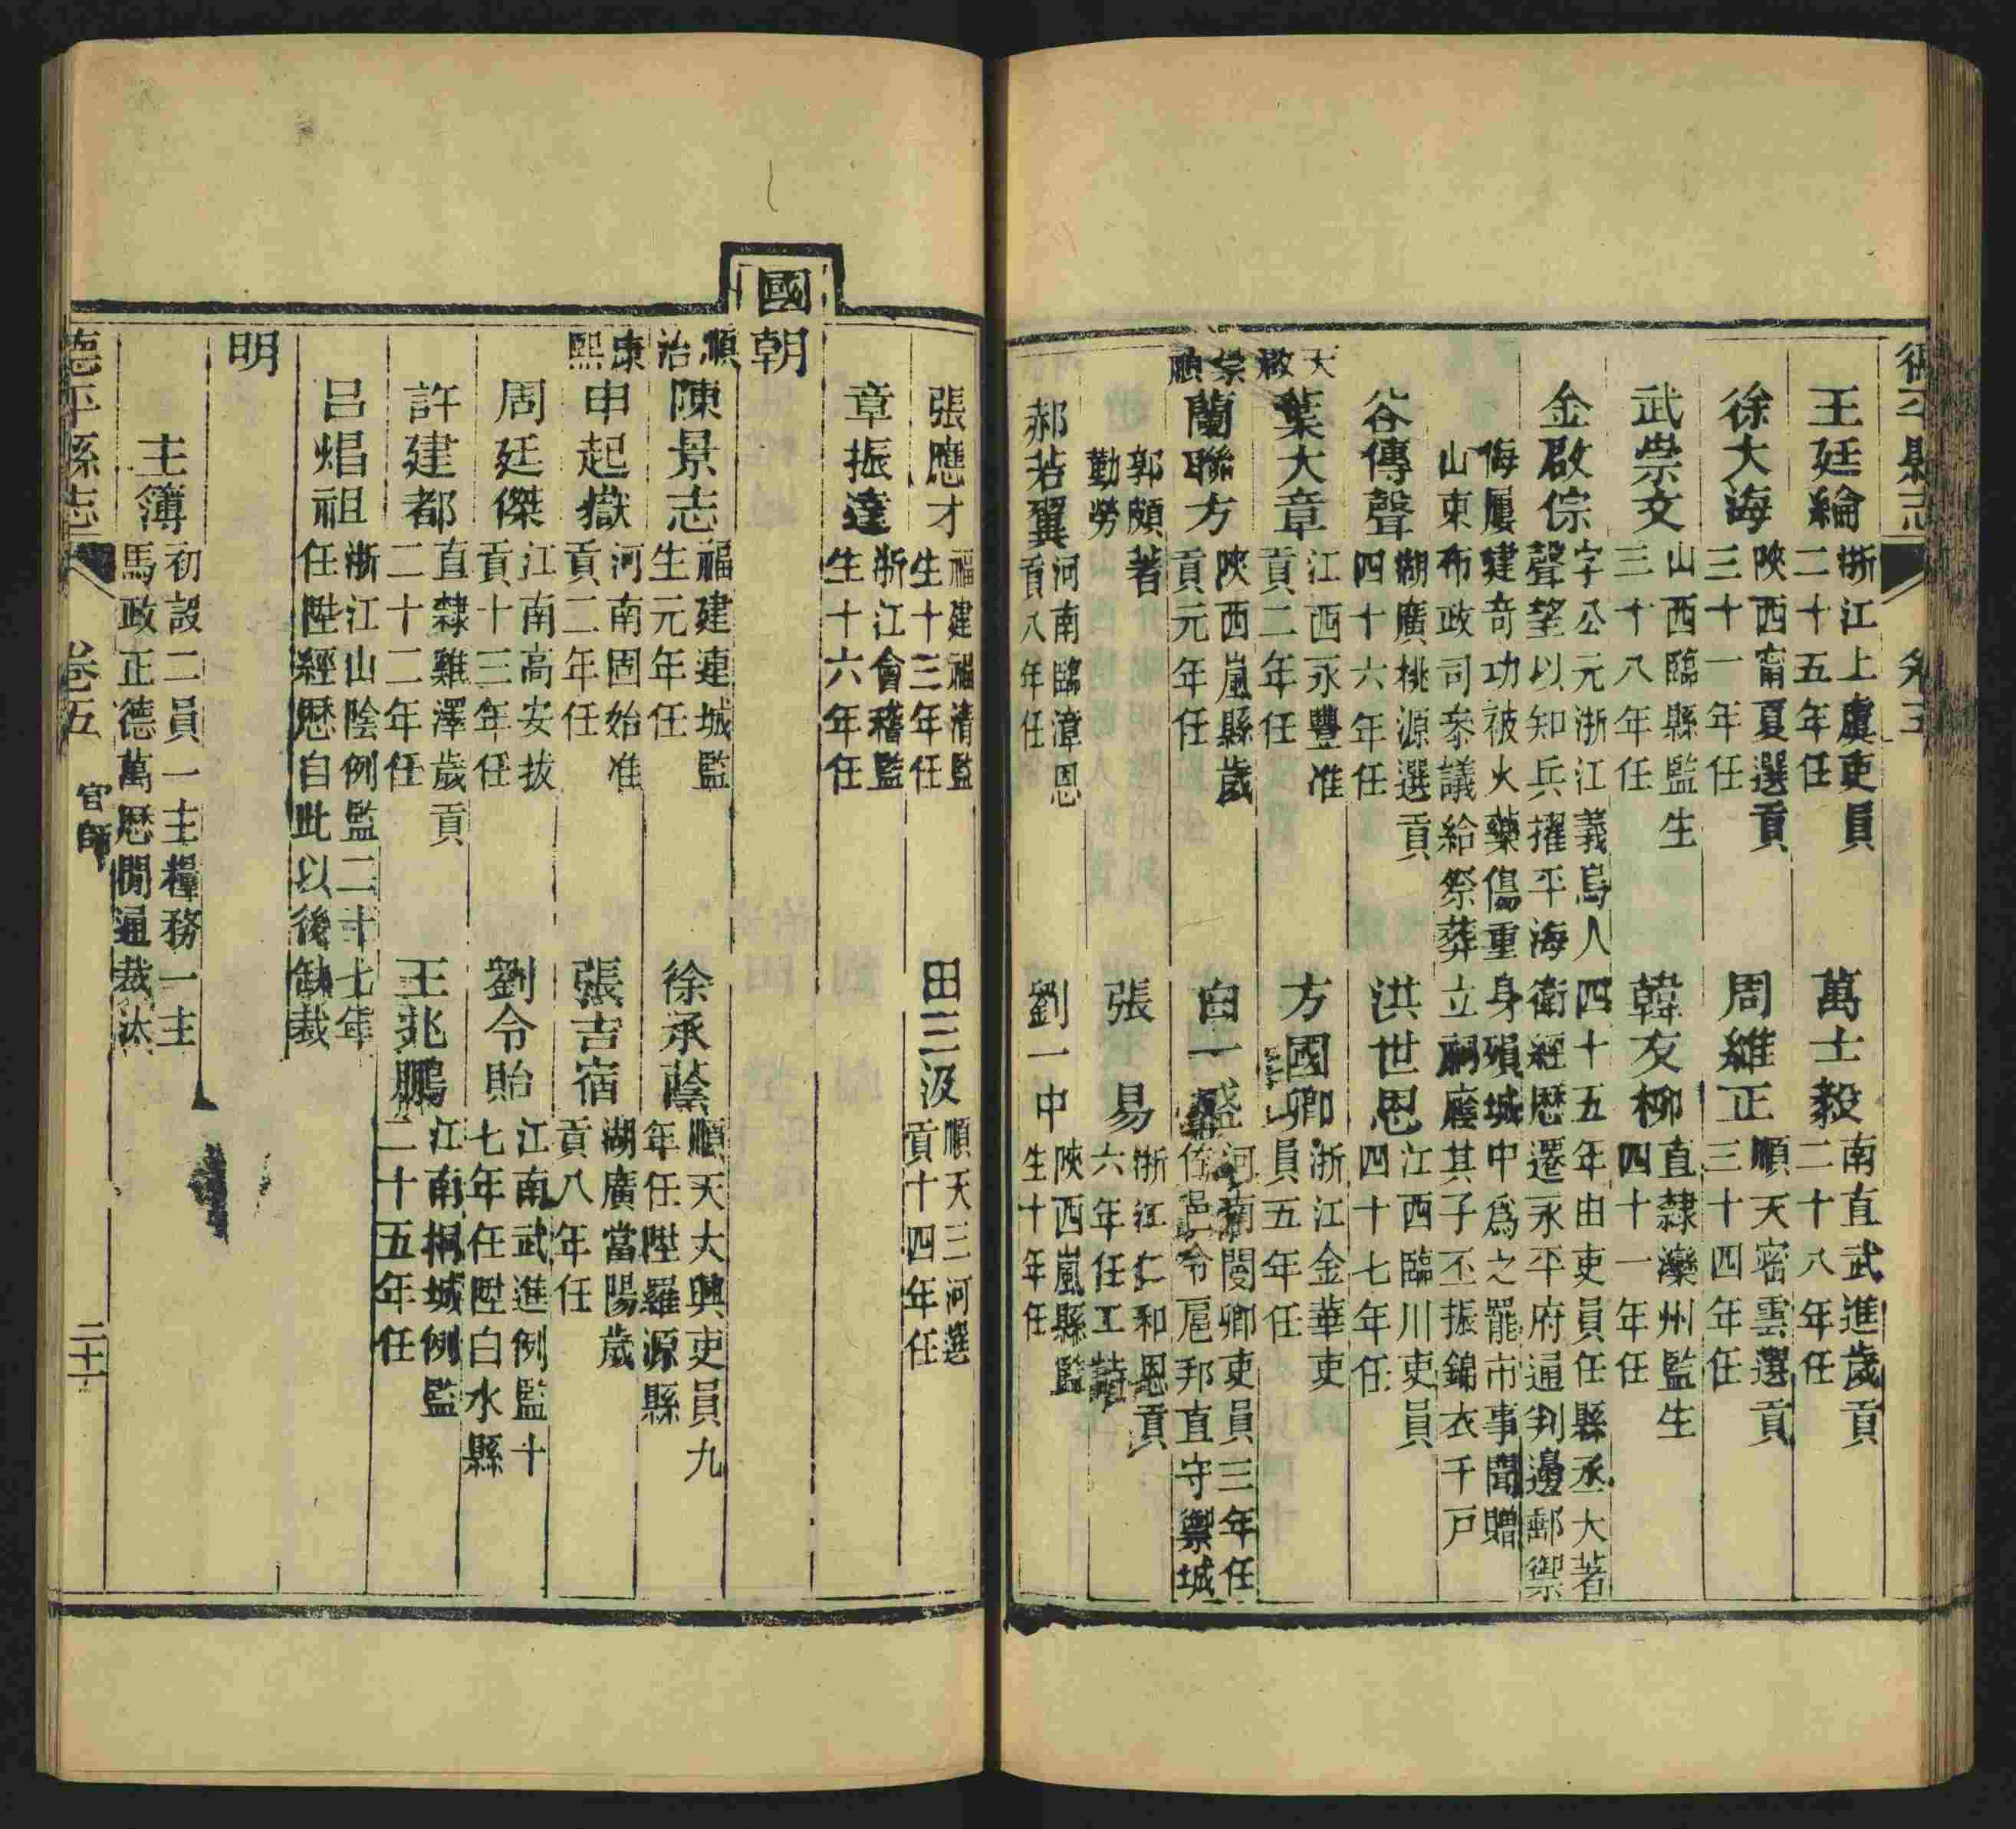 德平縣志
卷五
王廷綸 浙江上虞吏員二十五年任
萬士毅 南直武進歲貢二十八年任
徐大海 陝西甯夏選貢三十一年任
周維正 順天密雲選貢三十四年任
武崇文 山西臨縣監生三十八年任
韓友柳 直隸灤州監生四十一年任
金啟倧 字公元浙江義烏人四十五年由吏員任縣丞大著
聲望以知兵擢平海衛經歷遷永平府通判邊郵禦
侮屢建奇功被火藥傷重身殞城中爲之罷市事聞贈
山東布政司叅議給祭葬立嗣廕其子丕振錦衣千戶
谷傳聲 湖廣桃源選貢四十六年任
洪世恩 江西臨川吏員四十七年任
天啟
葉大章 江西永豐准貢二年任
方國卿 浙江金華吏員五年任
崇禎
蘭聯方 陝西嵐縣歲貢元年任
白一盛 河南閿鄉吏員三年任
佐邑令扈邦直守禦城
郭頗著
勤勞
張易 浙江仁和恩貢六年任工詩
郝若翼 河南臨漳恩貢八年任
劉一中 陝西嵐縣監生十年任
張應才 福建福清監生十三年任
田三汲 順天三河選貢十四年任
章振達 浙江會稽監生十六年任
國朝
順治
陳景志 福建連城監生元年任
徐承蔭 順天大興吏員九年任陞羅源縣
康熙
申起嶽 河南固始准貢二年任
張吉宿 湖廣當陽歲貢八年任
周廷傑 江南高安拔貢十三年任
劉令貽 江南武進例監十七年任陞白水縣
許建都 直隸雞澤歲貢二十二年任
王兆鵬 江南桐城例監二十五年任
呂焻祖 浙江山陰例監二十七年任陞經歷自此以後缺裁
明
主簿 初設二員一主糧務一主馬政正德萬歷閒遞裁汰
德平縣志
卷五
官師
二十一